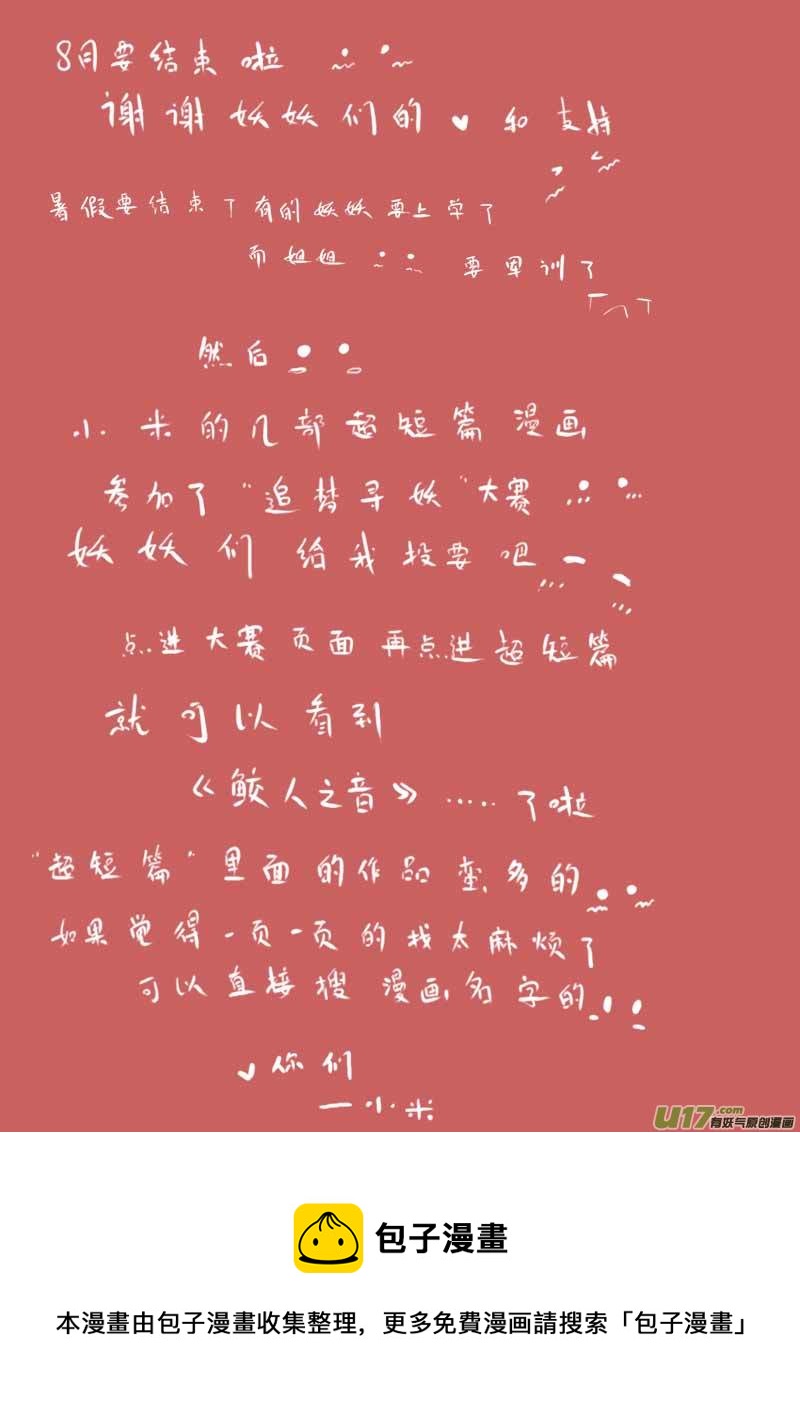 8月要结束啦
谢谢妖妖们的♥和支持
暑假要结束了有的妖妖要上学了
而姐姐 要军训了
然后
小米的几部超短篇漫画
参加了“追梦寻妖”大赛
妖妖们给我投要吧
点进大赛页面再点进超短篇
就可以看到
《鲛人之音》……了啦
“超短篇”里面的作品蛮多的
如果觉得一页一页的找太麻烦了
可以直接搜漫画名字的
♥你们
—小米
U17.com
有妖气原创漫画
包子漫畫
本漫畫由包子漫畫收集整理，更多免費漫画請搜索「包子漫畫」